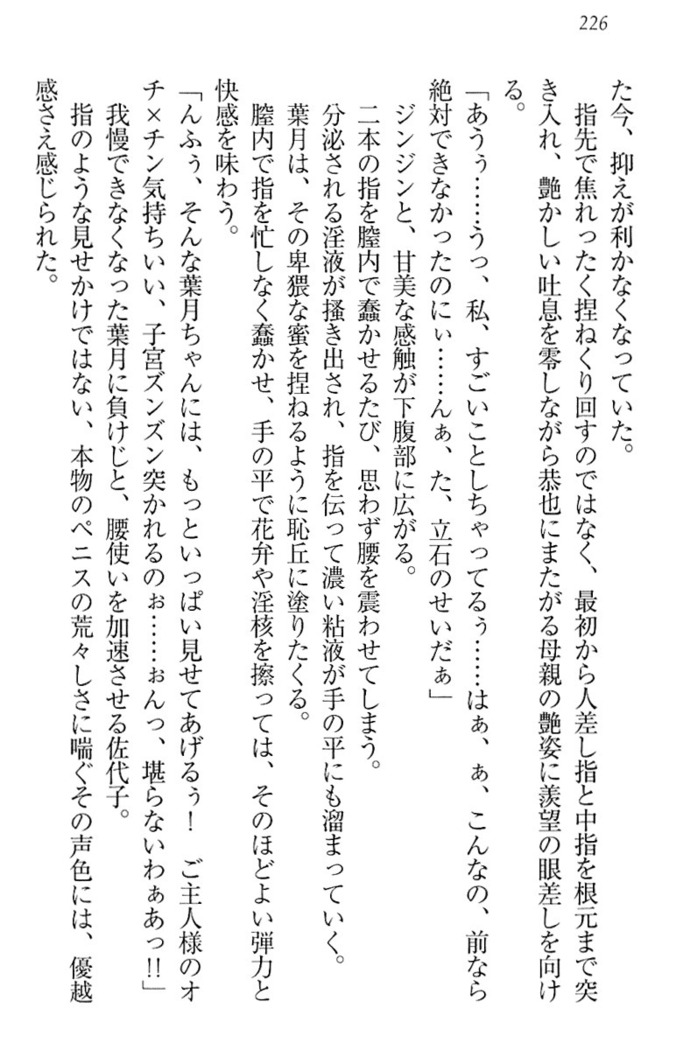 226
た今、抑えが利かなくなっていた。
指先で焦れったく捏ねくり回すのではなく、最初から人差し指と中指を根元まで突
き入れ、艶かしい吐息を零しながら恭也にまたがる母親の艶姿に羨望の眼差しを向け
る。
「あうぅ……うっ、私、すごいことしちゃってるぅ……はぁ、ぁ、こんなの、前なら
絶対できなかったのにぃ……んぁ、た、立石のせいだぁ」
ジンジンと、甘美な感触が下腹部に広がる。
二本の指を膣内で蠢かせるたび、思わず腰を震わせてしまう。
分泌される淫液が掻き出され、指を伝って濃い粘液が手の平にも溜まっていく。
葉月は、その卑猥な蜜を捏ねるように恥丘に塗りたくる。
膣内で指を忙しなく蠢かせ、手の平で花弁や淫核を擦っては、そのほどよい弾力と
快感を味わう。
「んふぅ、そんな葉月ちゃんには、もっといっぱい見せてあげるぅ！　ご主人様のオ
チ×チン気持ちいい、子宮ズンズン突かれるのぉ……ぉんっ、堪らないわぁあっ!!」
我慢できなくなった葉月に負けじと、腰使いを加速させる佐代子。
指のような見せかけではない、本物のペニスの荒々しさに喘ぐその声色には、優越
感さえ感じられた。